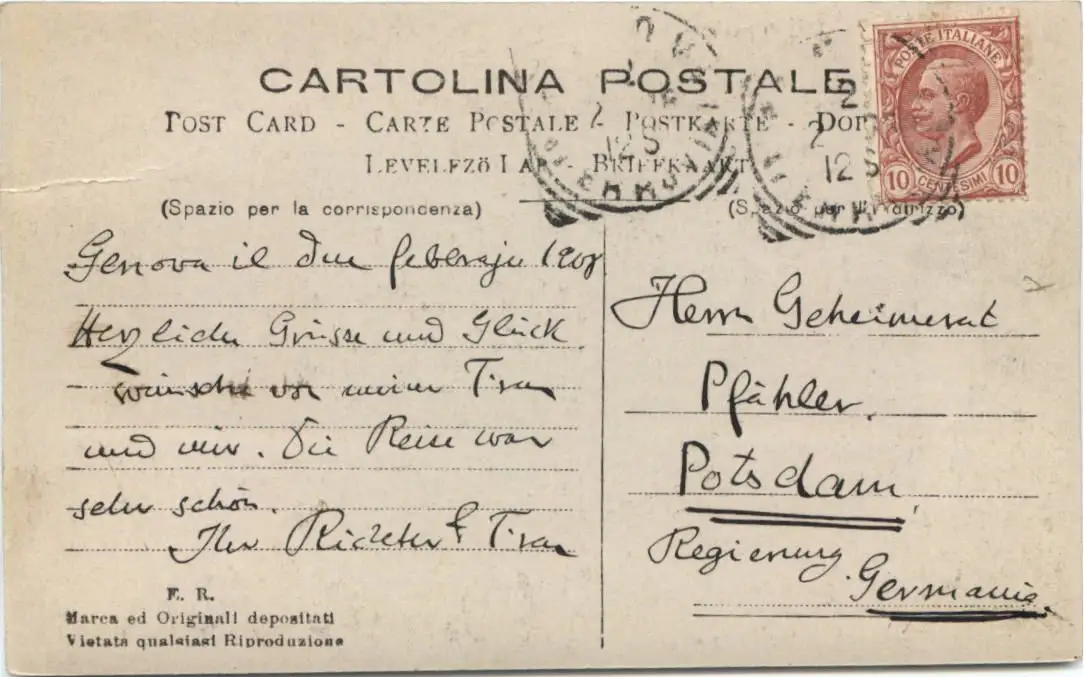 CARTOLINA POSTALE
POST CARD - CARTE POSTALE - POSTKARTE -
LEVELEZŐ LAP - BRIEFKAART
(Spazio per la corrispondenza)
(Spazio per l'indirizzo)
POSTE ITALIANE
10 CENTESIMI 10
2
12 S
FERROVIA
2
12 S
Genova il due febbrajo 1908
Herzliche Grüsse und Glück
wünsche von meiner Frau
und mir. Die Reise war
sehr schön.
Ihr Richter & Frau
Herrn Geheimerat
Pfähler.
Potsdam
Regierung
Germania.
E. R.
Marca ed Originali depositati
Vietata qualsiasi Riproduzione